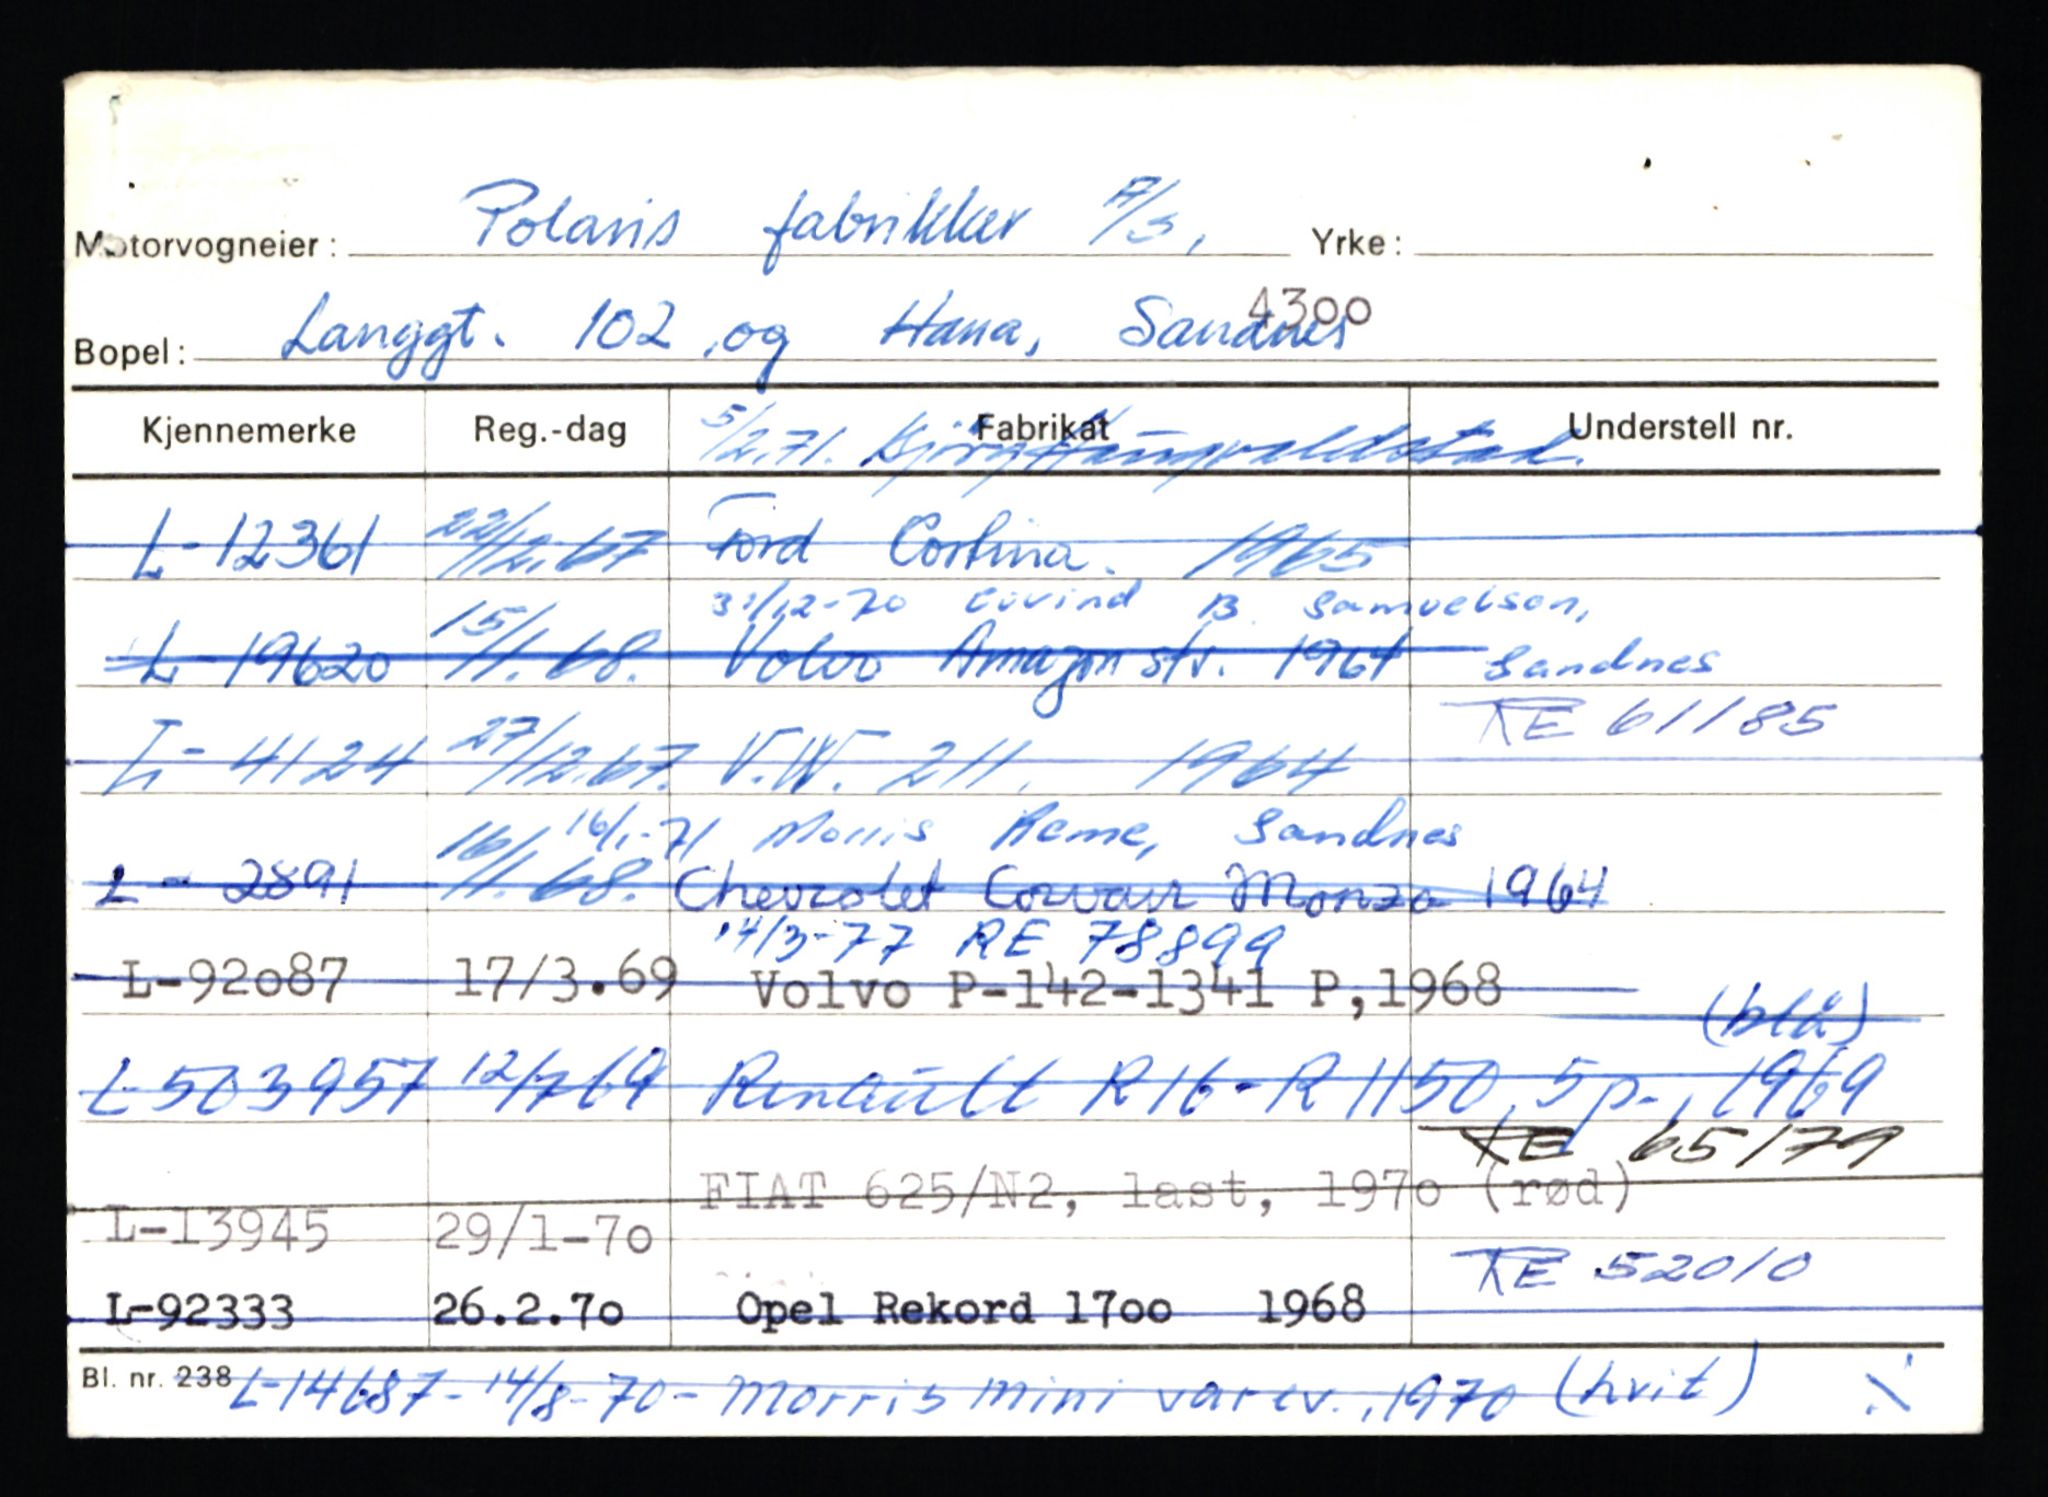 Motorvogneier: Polaris fabrikker A/S, Yrke:
4300
Bopel: Langgt. 102, og Hana, Sandnes
Kjennemerke Reg.-dag Fabrikat Understell nr.
5/2.71.
L-12361 22/12.67 Ford Cortina. 1965
31/12-70 Eivind B. Samuelsen,
L-19620 15/1.68. Volvo Amazon str. 1964 Sandnes
RE 61185
L-4124 27/12.67. V.W. 211, 1964
16/1-71 Morris Reme, Sandnes
L-2891 16/1.68. Chevrolet Corvair Monza 1964
14/3-77 RE 78899
L-92087 17/3.69 Volvo P-142-1341 P, 1968
(blå)
L-503957 12/7 69 Renault R16-R1150, 5p., 1969
RE 65179
FIAT 625/N2, last, 1970 (rød)
L-13945 29/1-70
RE 52010
L-92333 26.2.70 Opel Rekord 1700 1968
Bl. nr. 238 L-14687-14/8-70-Morris mini varev., 1970 (hvit)